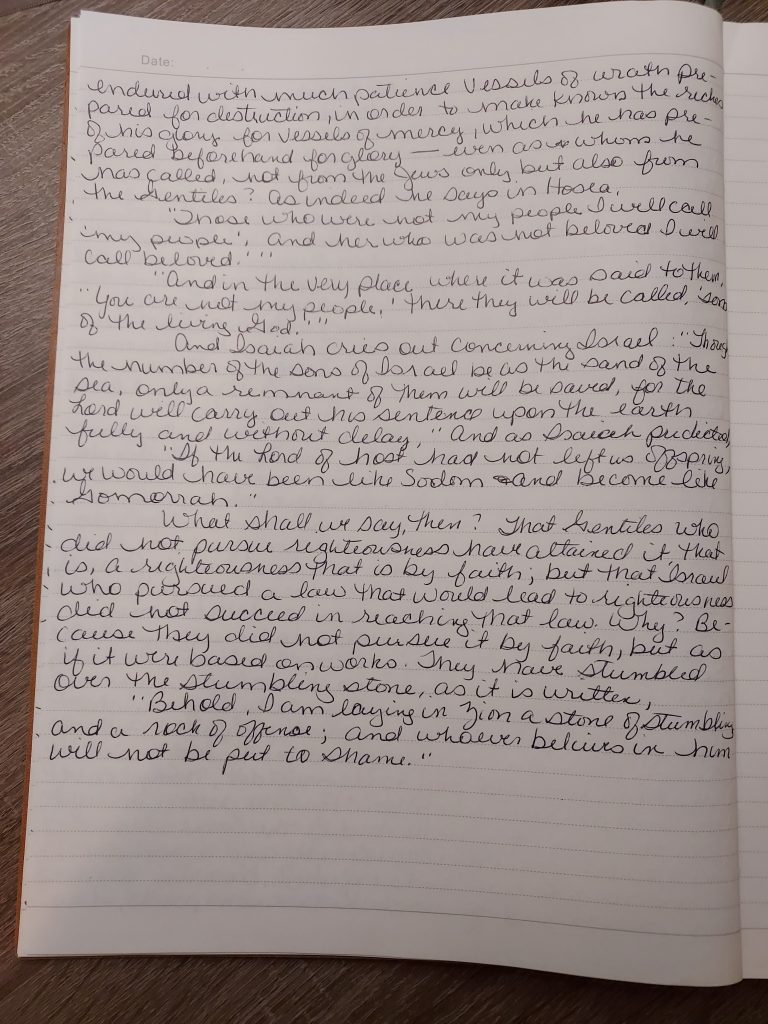 Date:
endured with much patience vessels of wrath pre-
pared for destruction, in order to make known the riches
of his glory for vessels of mercy, which he has pre-
pared beforehand for glory — even as whom he
has called, not from the Jews only but also from
the Gentiles? As indeed he says in Hosea,
"Those who were not my people I will call
'my people', and her who was not beloved I will
call beloved.'"
"And in the very place where it was said to them,
"You are not my people,' there they will be called, 'sons
of the living God.'"
And Isaiah cries out concerning Israel: "Though
the number of the sons of Israel be as the sand of the
sea, only a remnant of them will be saved, for the
Lord will carry out his sentence upon the earth
fully and without delay," And as Isaiah predicted,
"If the Lord of host had not left us offspring,
we would have been like Sodom and become like
Gomorrah."
What shall we say, then? That Gentiles who
did not pursue righteousness have attained it, that
is, a righteousness that is by faith; but that Israel
who pursued a law that would lead to righteousness
did not succeed in reaching that law. Why? Be-
cause they did not pursue it by faith, but as
if it were based on works. They have stumbled
over the stumbling stone, as it is written,
"Behold, I am laying in Zion a stone of stumbling
and a rock of offense; and whoever believes in him
will not be put to shame."